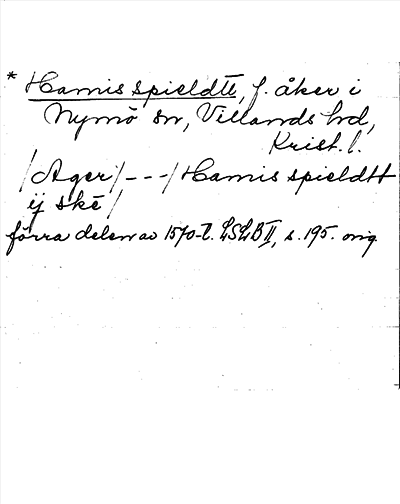 * Hamis spieldtt, f. åker i
Nymö sn, Villands hd,
Krist. l.
/Ager/ - - - / Hamis spieldtt
ij skē /
förra delen av 1570-t. LSLB II, s. 195. orig.